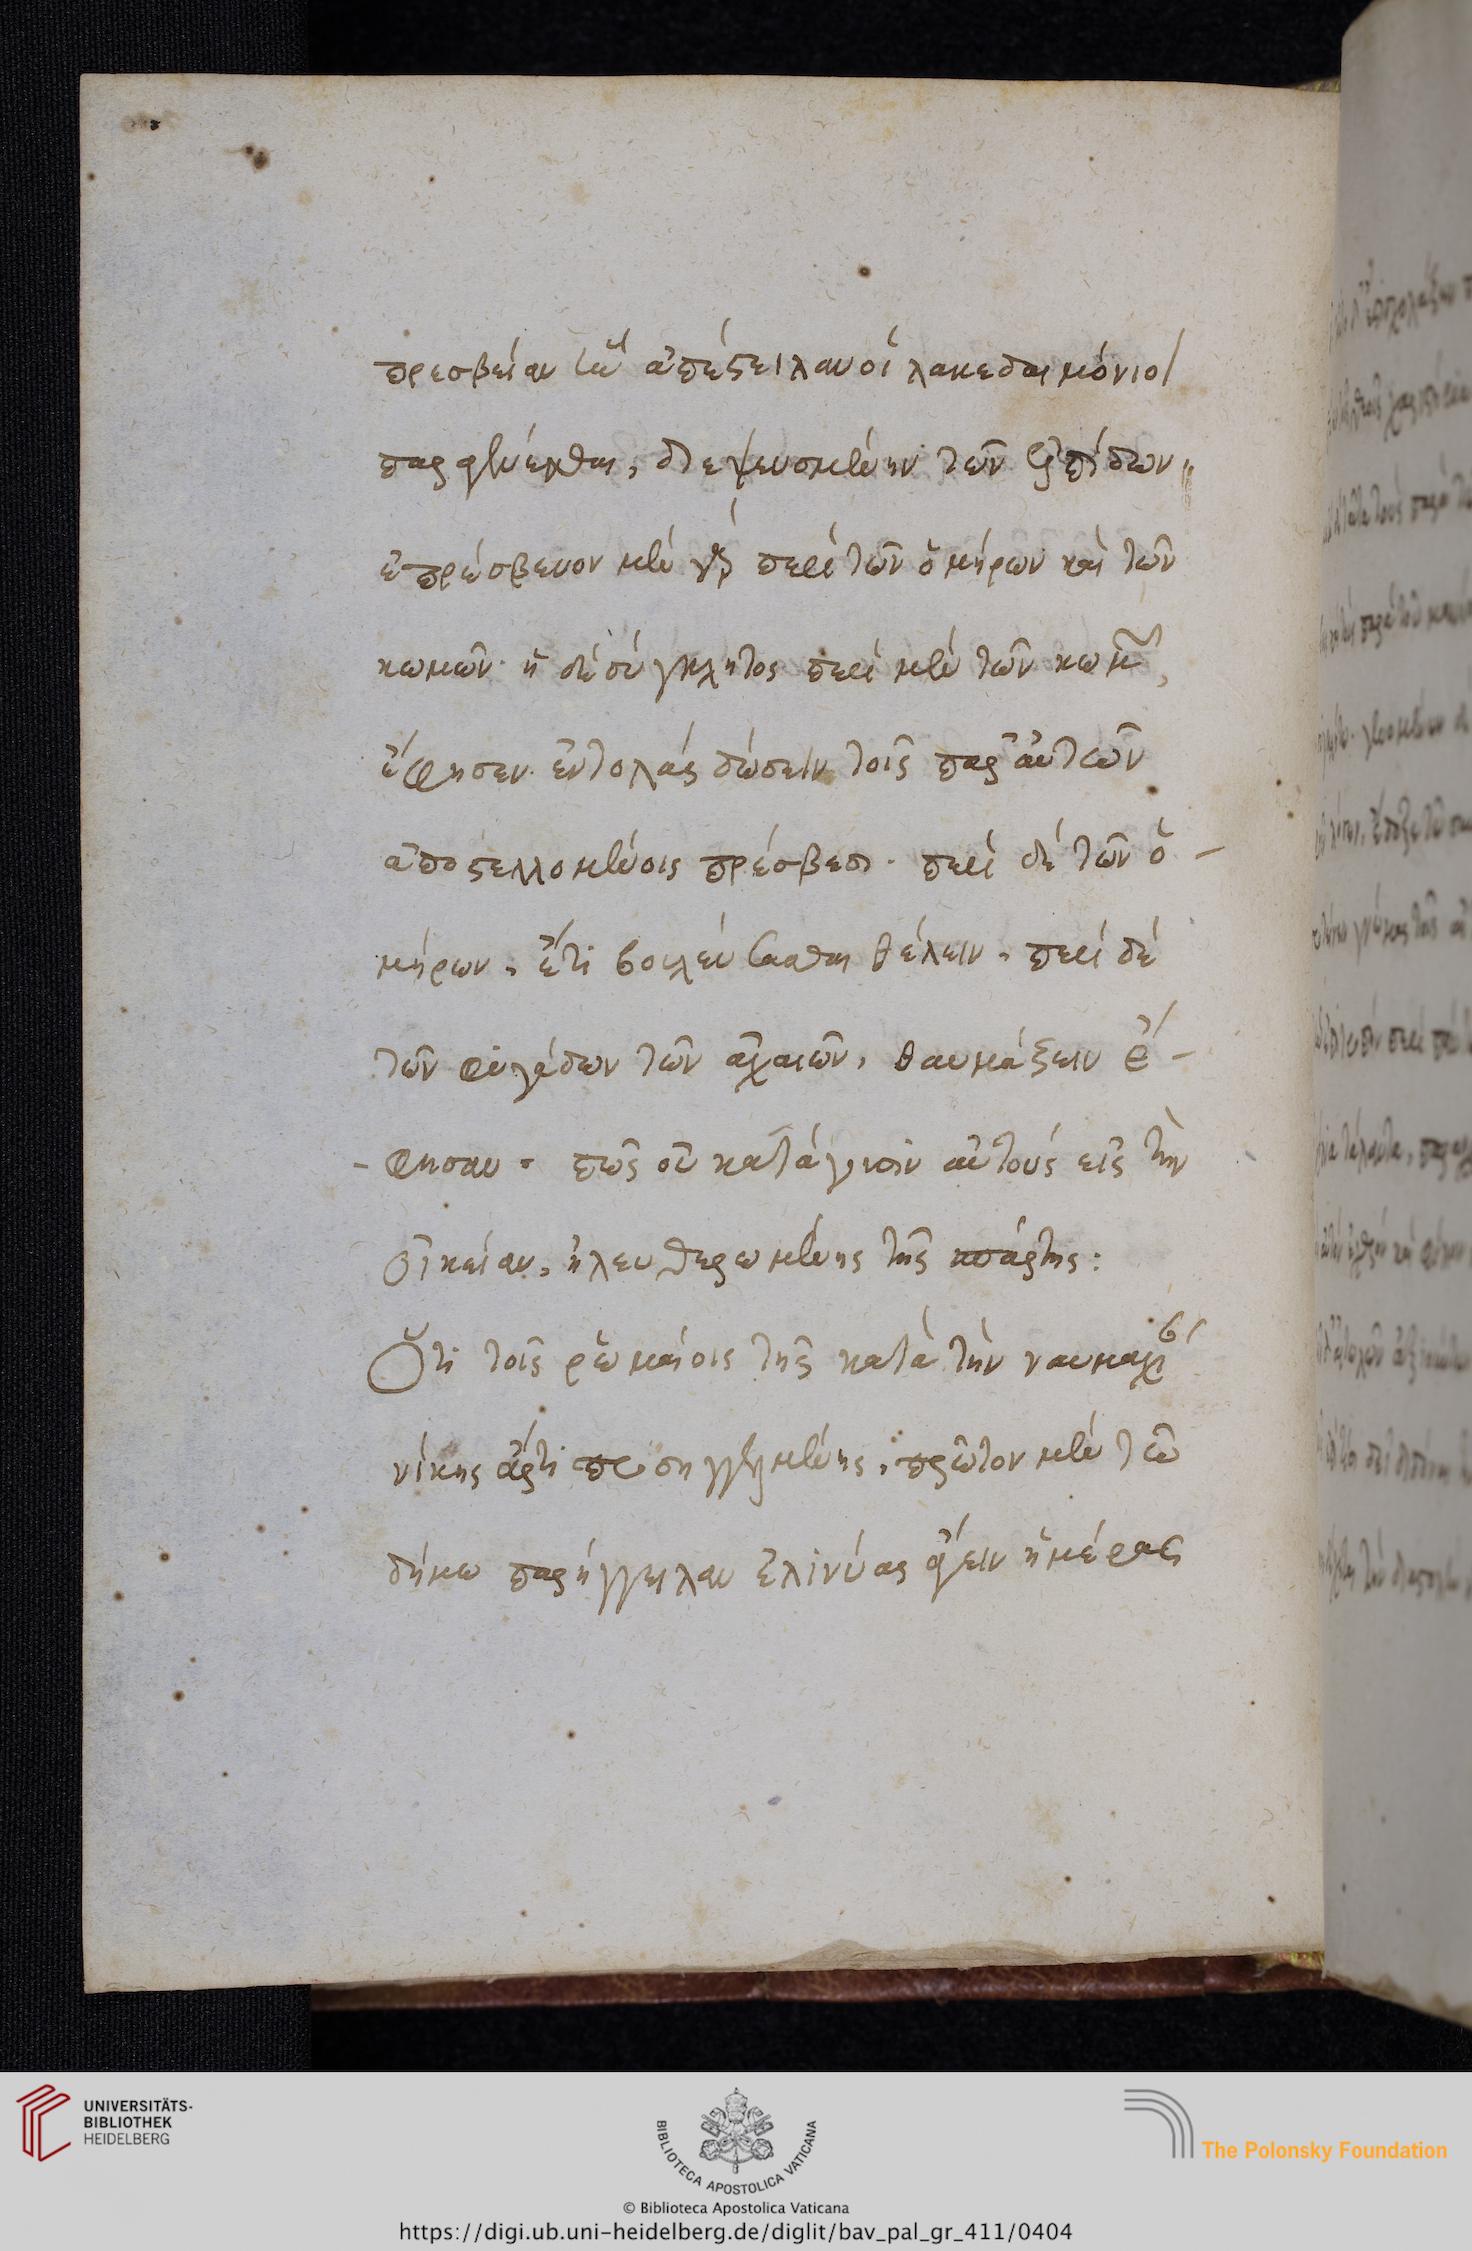 πρεσβείαν ἣν ἀπέστειλαν οἱ λακεδαιμόνιοι
παραγενέσθαι, διεψευσμένην τῶν ἐλπίδων.
ἐπρέσβευον μὲν γὰρ περὶ τῶν ὁμήρων καὶ τῶν
κωμῶν. ἡ δὲ σύγκλητος περὶ μὲν τῶν κωμῶν,
ἔφησεν ἐντολὰς δώσειν τοῖς παρ' αὐτῶν
ἀποστελλομένοις πρέσβεσι. περὶ δὲ τῶν ὁ-
μήρων, ἔτι βουλεύσασθαι θέλειν. περὶ δὲ
τῶν φυγάδων τῶν ἀρχαίων, θαυμάζειν ἔ-
-φησαν. πῶς οὐ κατάγουσιν αὐτοὺς εἰς τὴν
οἰκείαν, ἠλευθερωμένης τῆς σπάρτης:
Ὅτι τοῖς ῥωμαίοις τῆς κατὰ τὴν ναυμαχίαν
νίκης ἄρτι προσηγγελμένης, πρῶτον μὲν τῷ
δήμω παρήγγειλαν ἐλινύας ἄγειν ἡμέρας
UNIVERSITÄTS-
BIBLIOTHEK
HEIDELBERG
BIBLIOTECA APOSTOLICA VATICANA
The Polonsky Foundation
© Biblioteca Apostolica Vaticana
https://digi.ub.uni-heidelberg.de/diglit/bav_pal_gr_411/0404